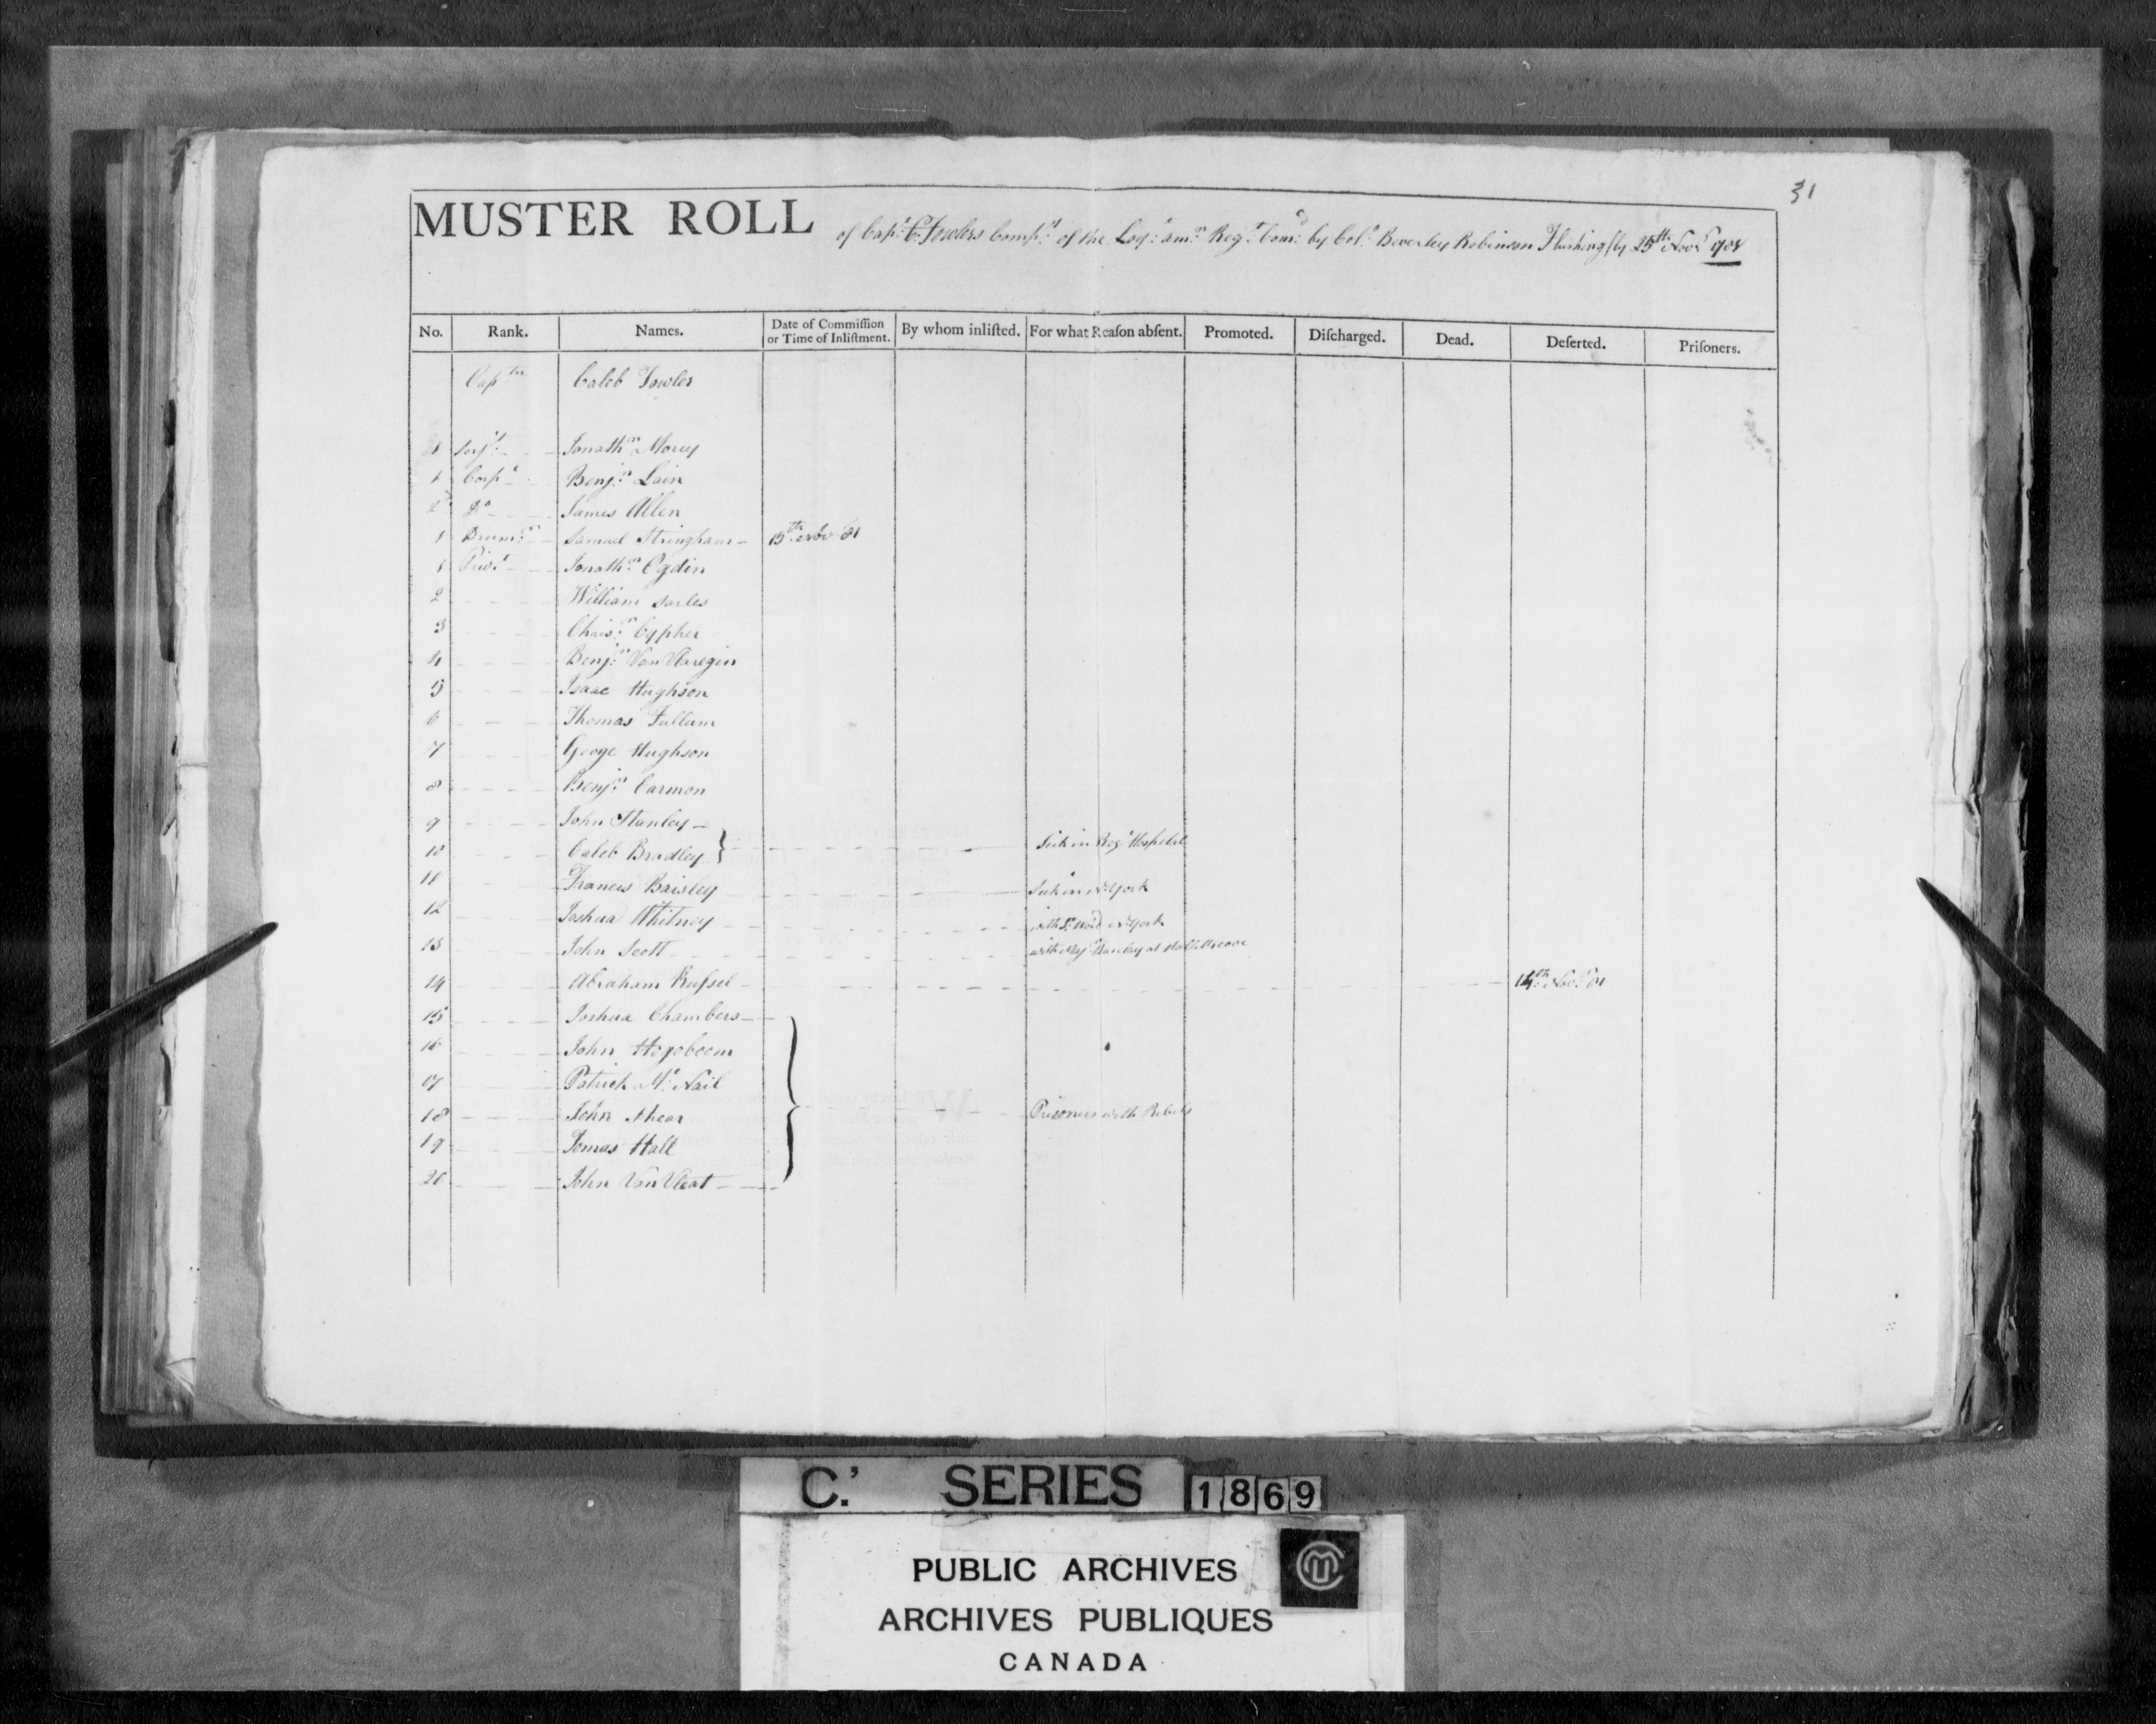 31
MUSTER ROLL of Capt. C. Fowlers Compy. of the Loyl. Amn. Regt. Comd. by Colo. Beverley Robinson Flushing fly 25th Novr.
No. Rank. Names. Date of Commiſſion or Time of Inliſtment. By whom inliſted. For what Reaſon abſent. Promoted. Diſcharged. Dead. Deſerted. Priſoners.
Captn Caleb Fowler
1 Serjt. Jonathn. Morey
1 Corpl Benjn. Lain
2 Do James Allen
1 Drumr. Samuel Stringham 15th Nov 81
1 Privt Jonathn. Ogdin
2 William Sarles
3 Chrisn. Cypher
4 Benjn. Van
5 Isaac Hughson
6 Thomas Fullum
7 Geoge Hughson
8 Benjn. Carmon
9 John Stanley
10 Caleb Bradley } Sick in Regl Hospital
11 Francis Baisley Sick in N York
12 Joshua Whitney with N York
13 John Scott with Majr Barclay at
14 Abraham Ruſsel 14th Novr. 81
15 Joshua Chambers
16 John Hogoboom
17 Patrick Mc Nail
18 John Shear } Prisoners with Rebels
19 Jomas Hall
20 John Van Vleat
C.' SERIES 1869
PUBLIC ARCHIVES
ARCHIVES PUBLIQUES
CANADA